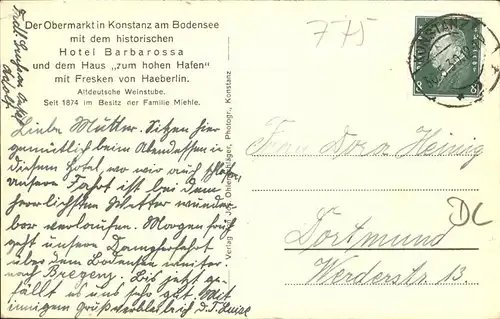 Der Obermarkt in Konstanz am Bodensee
mit dem historischen
Hotel Barbarossa
und dem Haus „zum hohen Hafen"
mit Fresken von Haeberlin.
Altdeutsche Weinstube.
Seit 1874 im Besitz der Familie Miehle.
Liebe Mutter. Sitzen hier
gemütlich beim Abendessen in
diesem Hotel, wo wir auch schlafen
unsere Fahrt ist bei dem
herrlichsten Wetter wunder-
bar verlaufen. Morgen früh
geht unsere Dampferfahrt
über dem Bodensee weiter
nach Bregenz. Bis jetzt ge-
fällt es uns sehr gut. Mit
innigem Gruß verbleibe ich D. T. Luise
Adolf
Verlag Jos. Ohlenschläger, Photogr., Konstanz
775
KONSTANZ
8
Frau Dora Heinig
DL
Dortmund
Werderstr 13.